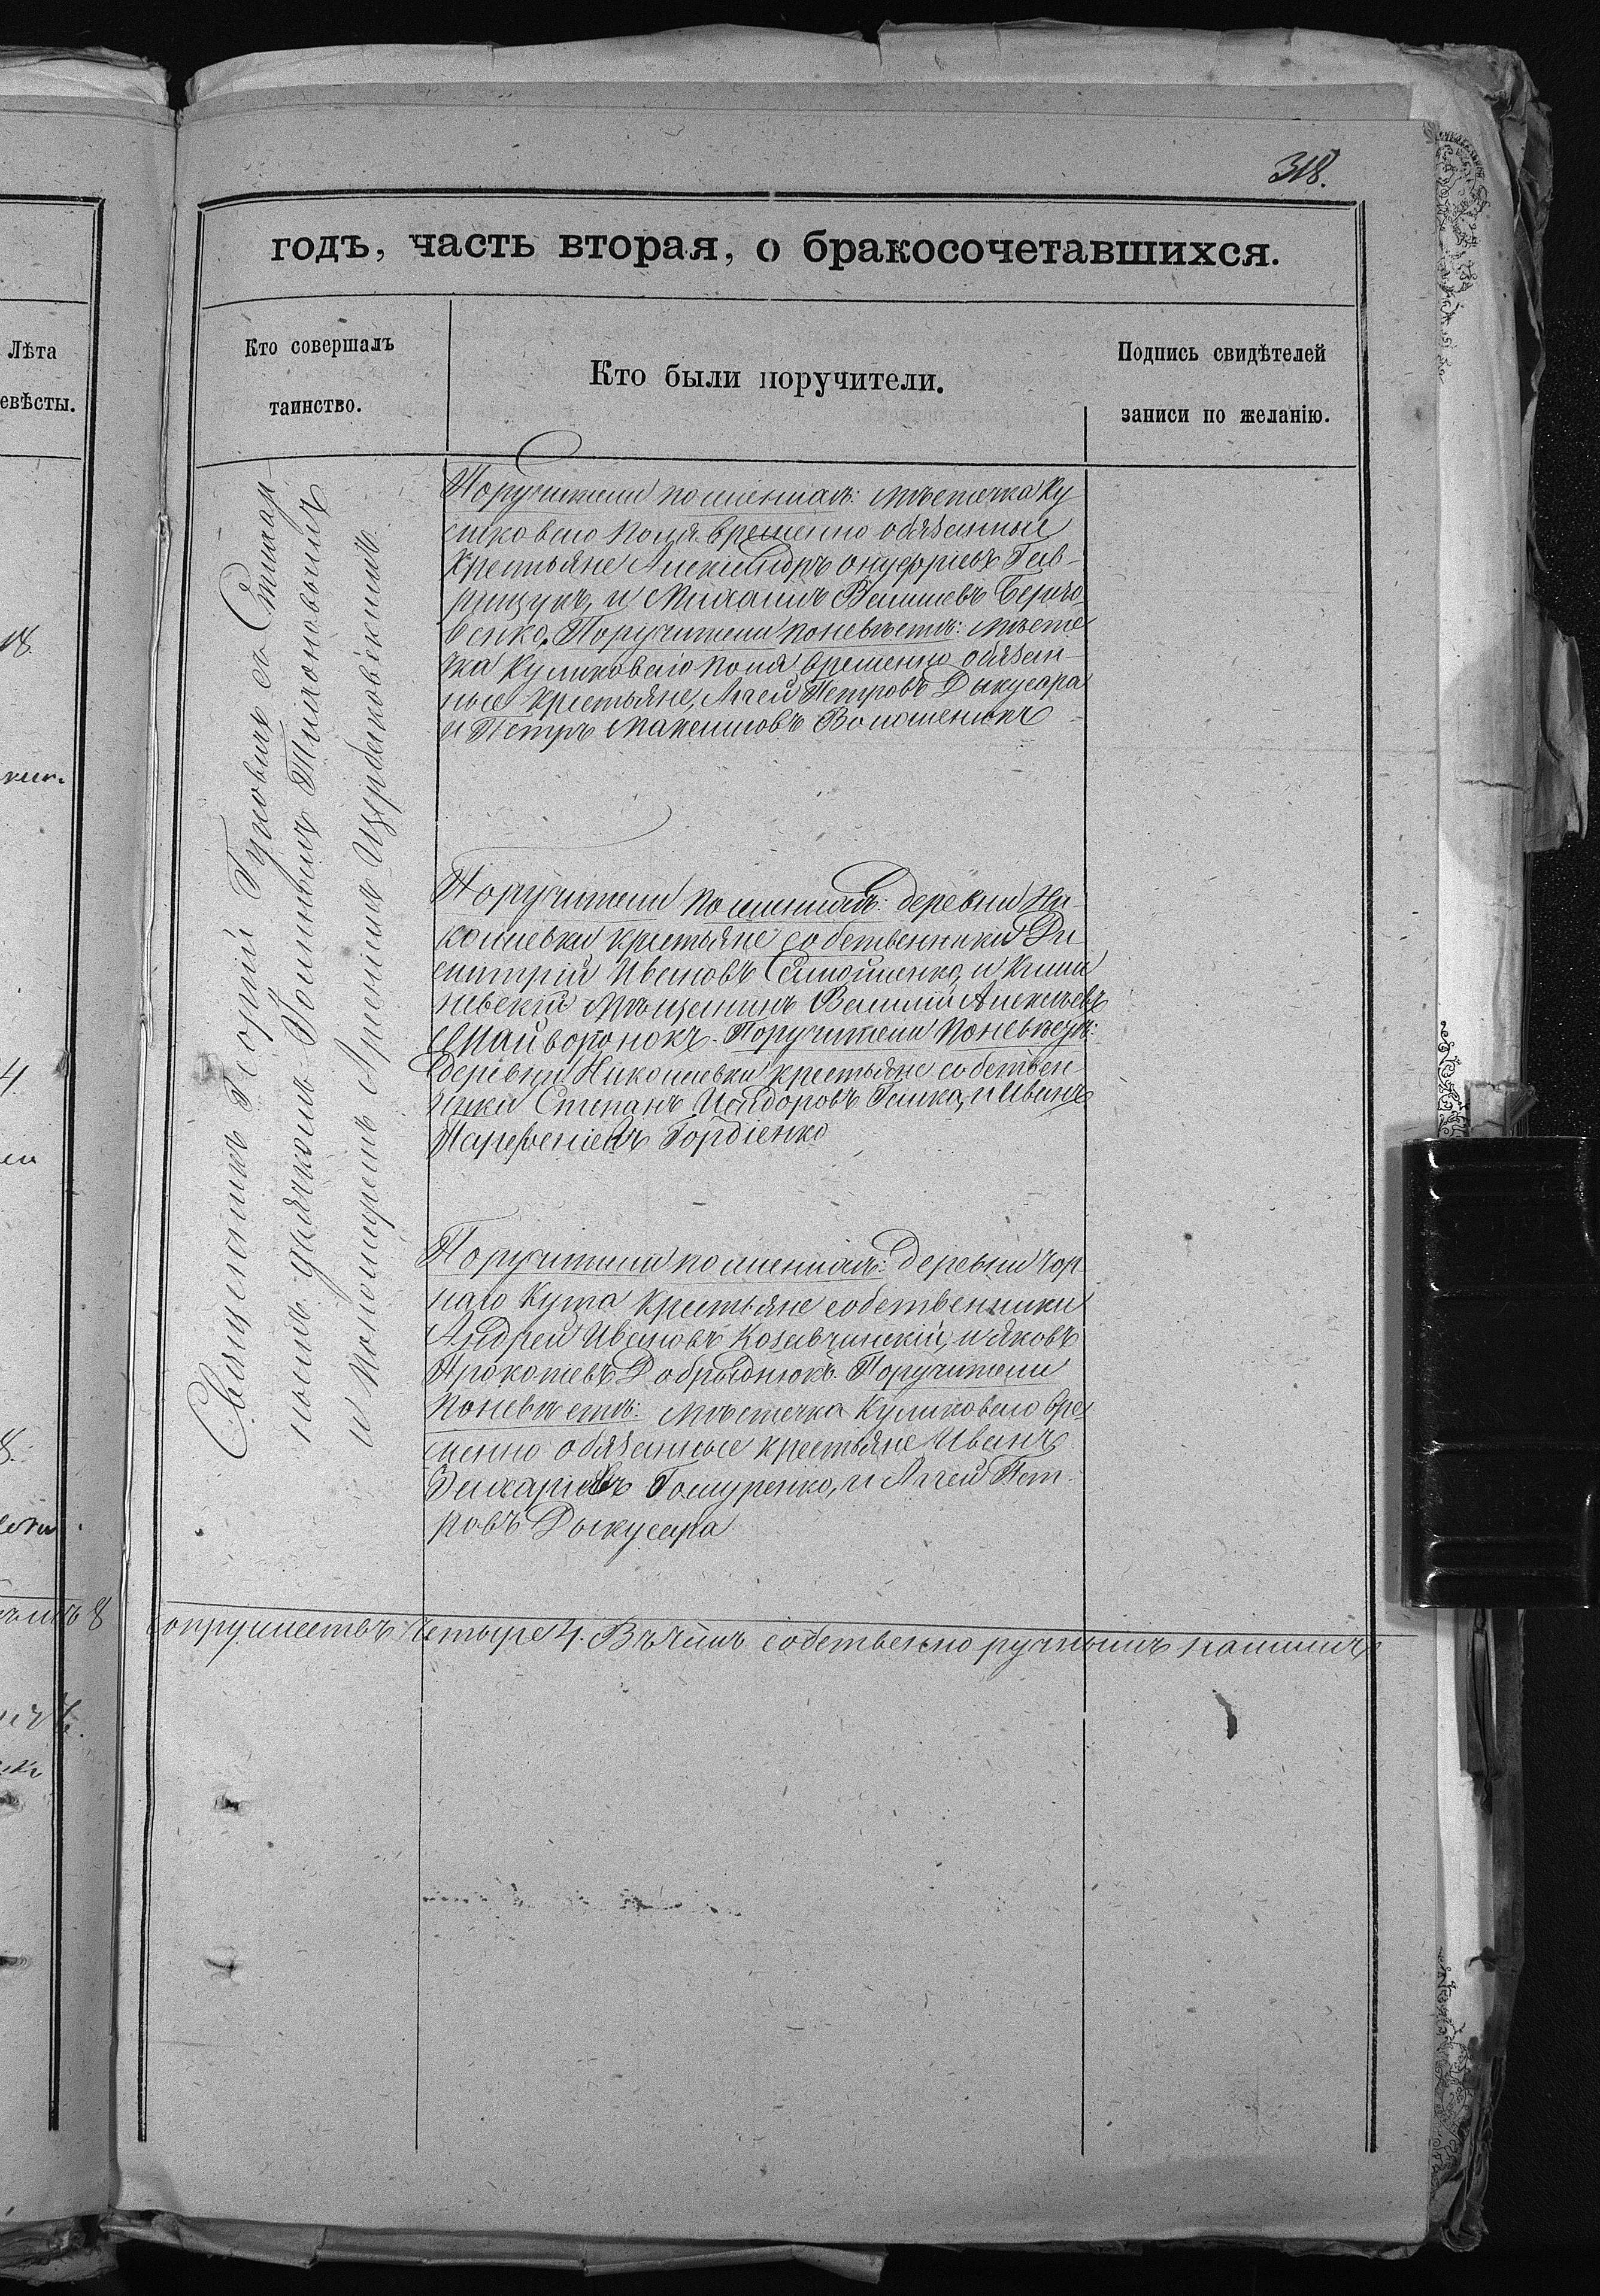 318.
годъ, часть вторая, о бракосочетавшихся.
Лѣта
евѣсты.
Кто совершалъ
таинство.
Кто были поручители.
Подпись свидѣтелей
записи по желанію.
Священникъ Георгій съ
нымъ дьячкомъ
и пономаремъ Щербаковскимъ.
Поручители по женихѣ: мѣстечка Ку
ликоваго Поля временно обязанные
крестьяне Александръ Онуфріевъ Гав-
рищукъ, и Михаилъ
венко. Поручители по невѣстѣ: мѣсте
чка Куликоваго Поля временно обязан-
ные крестьяне, Агей Петровъ Дыкусара
и Петръ Максимовъ Волошенюкъ
Поручители по женихѣ: деревни Ни-
колаевки крестьяне собственники Ди
митрій Ивановъ Самойленко, и Киши
невскій мѣщанинъ Василій Алексѣевъ
Найворонокъ. Поручители по невѣстѣ:
деревни Николаевки крестьяне собствен
ники Степанъ Исидоровъ и Иванъ
Парфеніевъ Гордіенко
Поручители по женихѣ: деревни Чор
наго Кута крестьяне собственники
Андрей Ивановъ Козавчинскій, и Яковъ
Прокопіевъ Добрыднюкъ. Поручители
по невѣстѣ: мѣстечка Куликоваго вре
менно обязанные крестьяне Иванъ
Захаріевъ и Агей Пет-
ровъ Дыкусара
супружествъ четыре 4. Въ чемъ собственно ручнымъ нашимъ